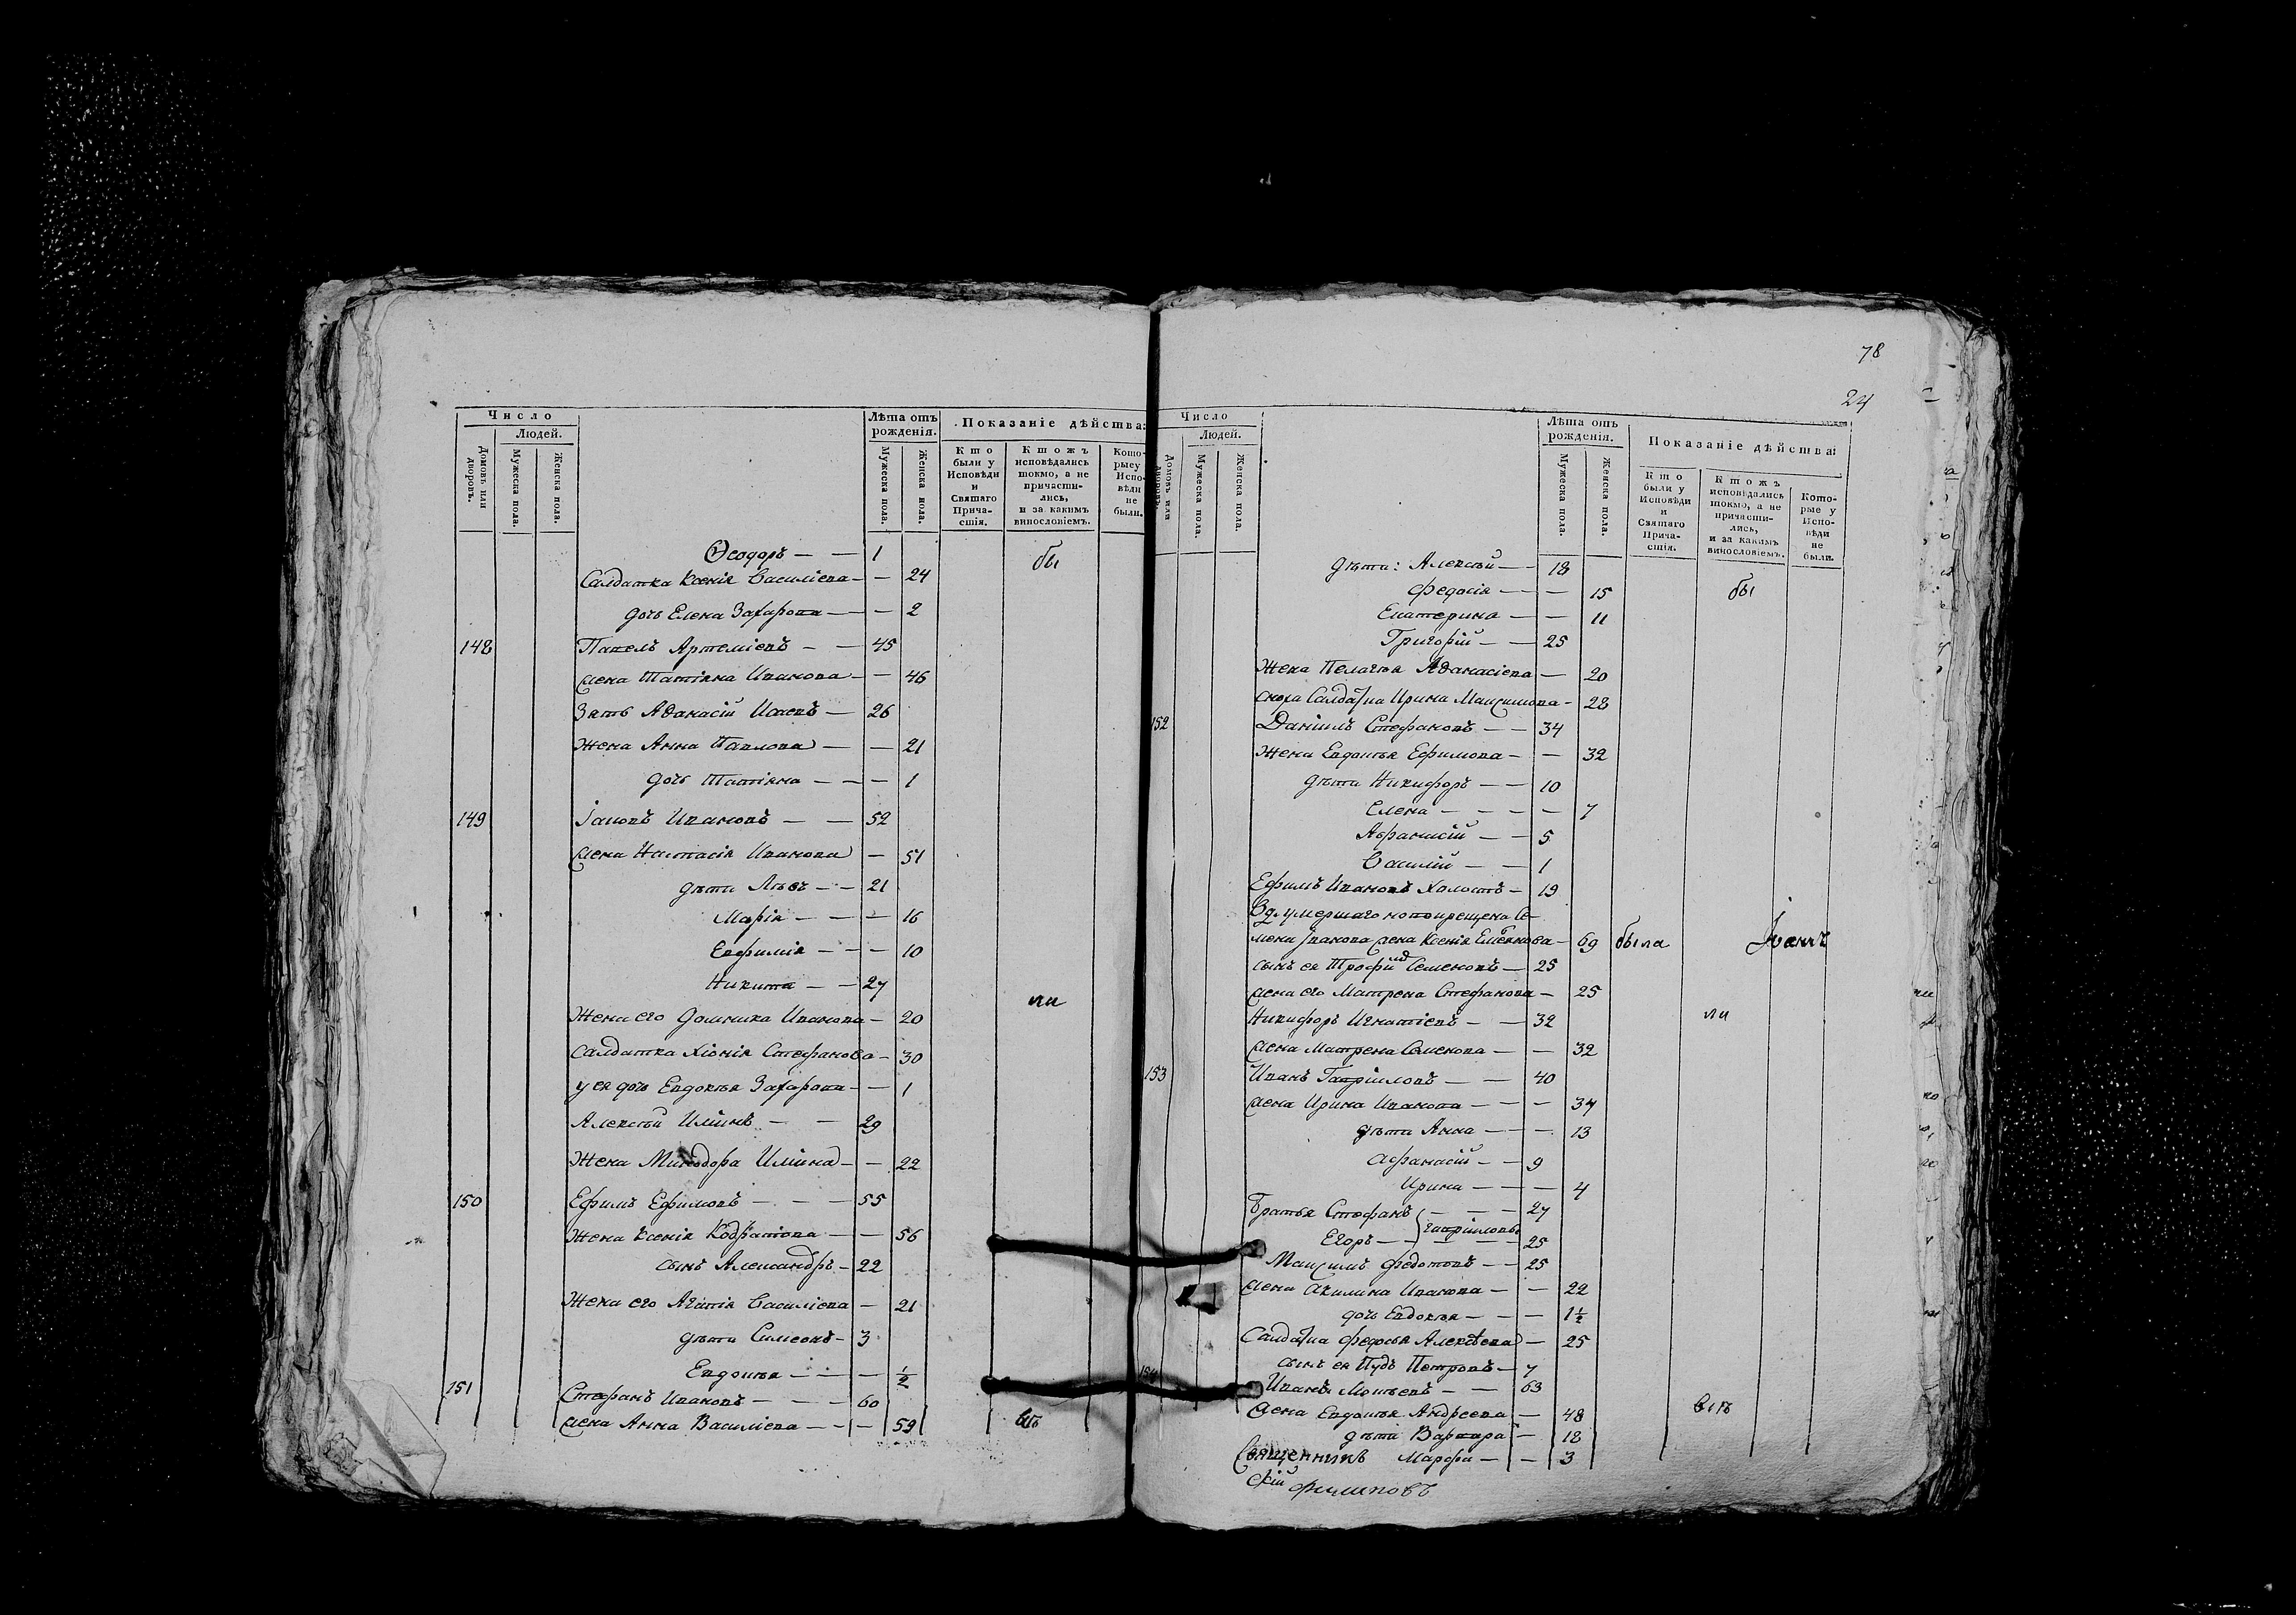 Число
Людей.
Домовъ или дворовъ.
Мужеска пола.
Женска пола.
Лѣта отъ рожденія.
Мужеска пола.
Женска пола.
Показаніе дѣйства:
Кто были у Исповѣди и Святаго Причастія.
Ктожъ исповѣдались токмо, а не причастились, и за какимъ винословіемъ.
Которые у Исповѣди не были.
Ѳеодоръ — — 1
бы
Салдатка Ксенія Василіева — — 24
дочь Елена Захарова — — 2
148 Павелъ Артеміевъ — — 45
жена Татіяна Иванова — — 46
Зять Аѳанасій Исаевъ — 26
Жена Анна Павлова — — 21
дочь Татіяна — — — 1
149 Іаковъ Ивановъ — — 52
жена Настасія Иванова — 51
дѣти Левъ — — 21
Марія — — — 16
Евфимія — — — 10
Никита — — 27
ли
Жена его Домника Иванова — 20
Салдатка Хіонія Стефанова — 30
у ея дочь Евдокея Захарова — — 1
Алексѣй Иліинъ — — 29
Жена Минодора Иліина — — 22
150 Ефимъ Ефимовъ — — — 55
Жена Ксенія Кодратова — — 56
сынъ Александръ — 22
Жена его Агапія Василіева — 21
дѣти Симеонъ — 3
Евдокея — — — ½
151 Стефанъ Ивановъ — — — 60
жена Анна Василіева — — — 59
всѣ
78
24
Число
Людей.
Домовъ или дворовъ.
Мужеска пола.
Женска пола.
Лѣта отъ рожденія.
Мужеска пола.
Женска пола.
Показаніе дѣйства:
Кто были у Исповѣди и Святаго Причастія.
Ктожъ исповѣдались токмо, а не причастились, и за какимъ винословіемъ.
Которые у Исповѣди не были.
дѣти: Алексѣй — — 18
Федосія — — — 15
бы
Екатерина — — 11
Григорій — — 25
Жена Пелагея Аѳанасіева — 20
сноха Салдатка Ирина Максимова — 28
152 Даніилъ Стефановъ — — 34
Жена Евдокея Ефимова — — 32
дѣти Никифоръ — — 10
Елена — — — — 7
Афанасій — — 5
Василій — — 1
Ефимъ Ивановъ Холостъ — 19
Вд. умершаго новокрещена Се-
мена Иванова жена Ксенія — 69 была
сынъ ея Трофимъ Семеновъ — 25
жена его Матрена Стефанова — 25
Никифоръ Игнатіевъ — — 32
ли
жена Матрена Семенова — — 32
153 Иванъ Гавриловъ — — 40
жена Ирина Иванова — — — 37
дѣти Анна — — — 13
Афанасій — — 9
Ирина — — — 4
Братья Стефанъ — — — 27
Гавриловы
Егоръ — — — — 25
Максимъ Федотовъ — — 25
жена Акилина Иванова — — 22
дочь Евдокея — — — 1½
Салдатка Федосья Алексѣева — 25
сынъ ея Пудъ Петровъ — 7
154 Иванъ Моисевъ — — 63
жена Евдокея Андреева — 48
всѣ
дѣти Варвара — 18
Марфа — — 3
Священникъ
Филиповъ